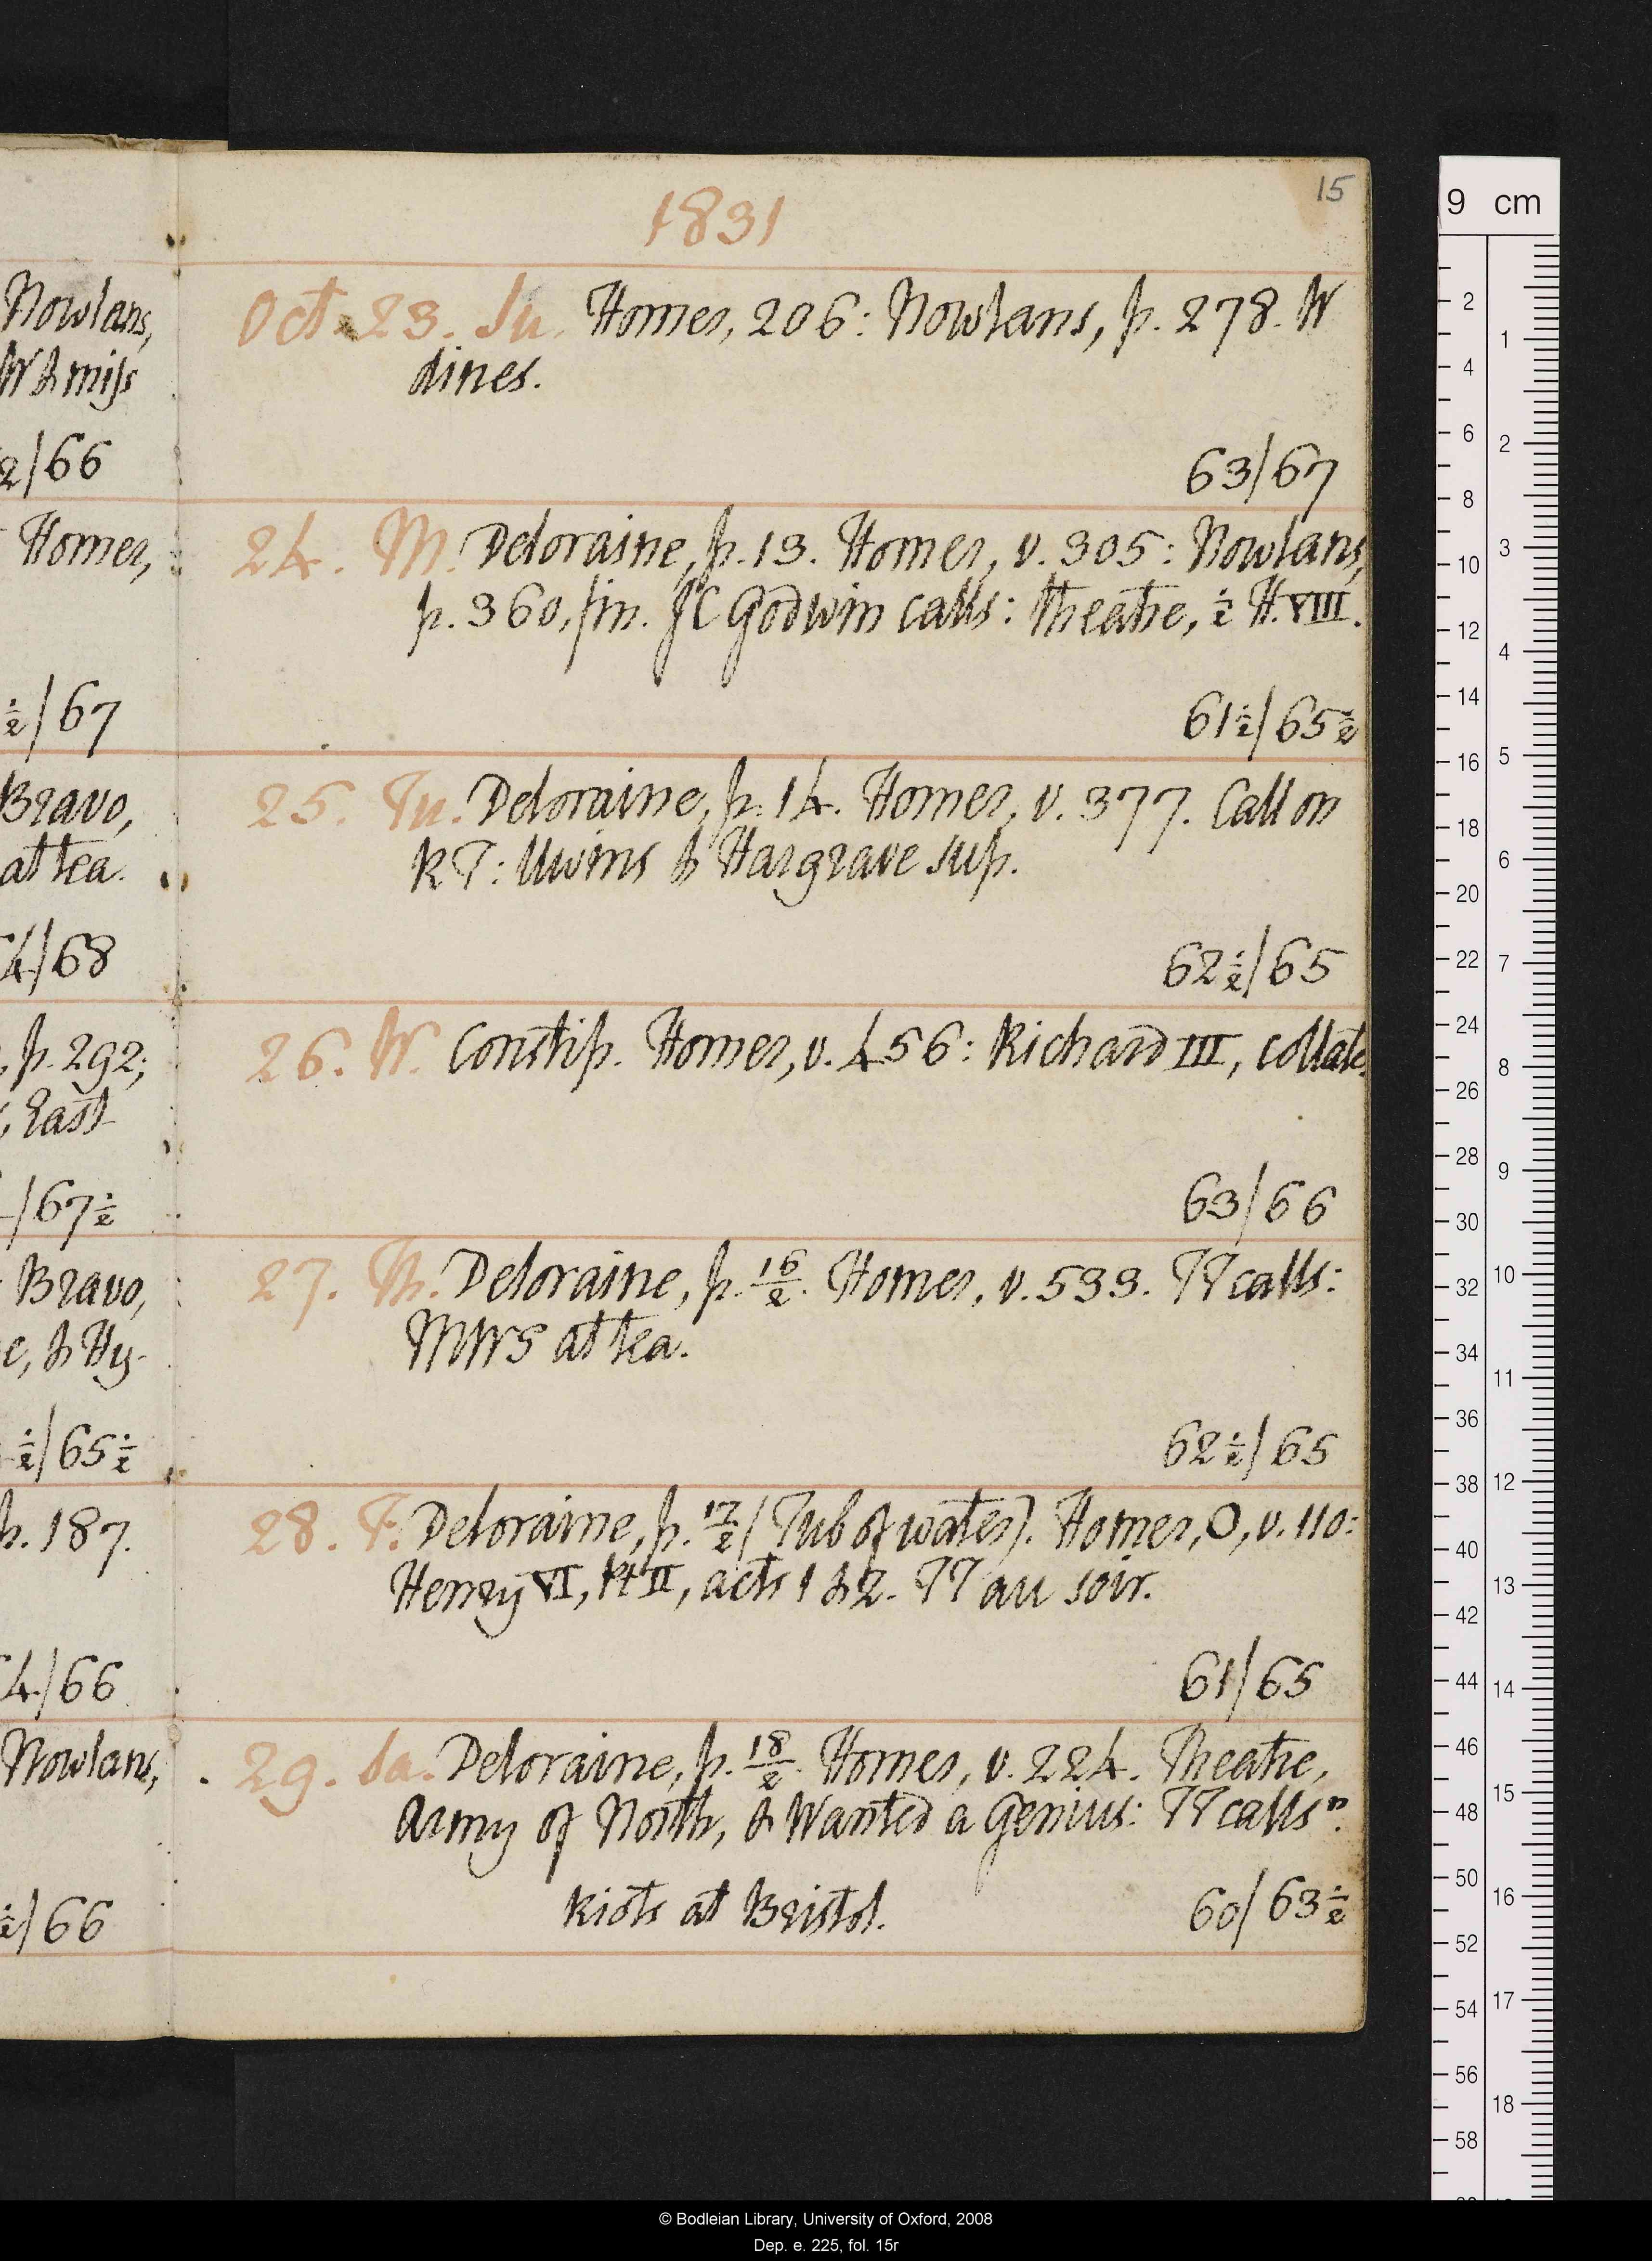 15
1831
Nowlans,
W & miss
2/66
Homer,
½/67
Bravo,
at tea.
4/68
, p. 292;
, East
/67½
Bravo,
e, & Hy-
½/65½
p. 187.
4/66
Nowlans,
½/66
Oct. 23. Su. Homer, 206: Nowlans, p. 278. W
dines.
63/67
24. M. Deloraine, p. 13. Homer, v. 305: Nowlans,
p. 360, fin. JC Godwin calls: theatre, ½ H. VIII.
61½/65½
25. Tu. Deloraine, p. 14. Homer, v. 377. Call on
RT: Uwins & Hargrave sup.
62½/65
26. W. Constip. Homer, v. 456: Richard III, collate.
63/66
27. Th. Deloraine, p. 16/2. Homer, v. 533. TT calls:
MWS at tea.
62½/65
28. F. Deloraine, p. 17/2 (Tub of water). Homer, O, v. 110:
Henry VI, Pt II, acts 1 & 2. TT au soir.
61/65
29. Sa. Deloraine, p. 18/2. Homer, v. 224. Theatre,
Army of North, & Wanted a Genius: TT calls n.
Riots at Bristol. 60/63½
9 cm
2
4
6
8
10
12
14
16
18
20
22
24
26
28
30
32
34
36
38
40
42
44
46
48
50
52
54
56
58
1
2
3
4
5
6
7
8
9
10
11
12
13
14
15
16
17
18
© Bodleian Library, University of Oxford, 2008
Dep. e. 225, fol. 15r